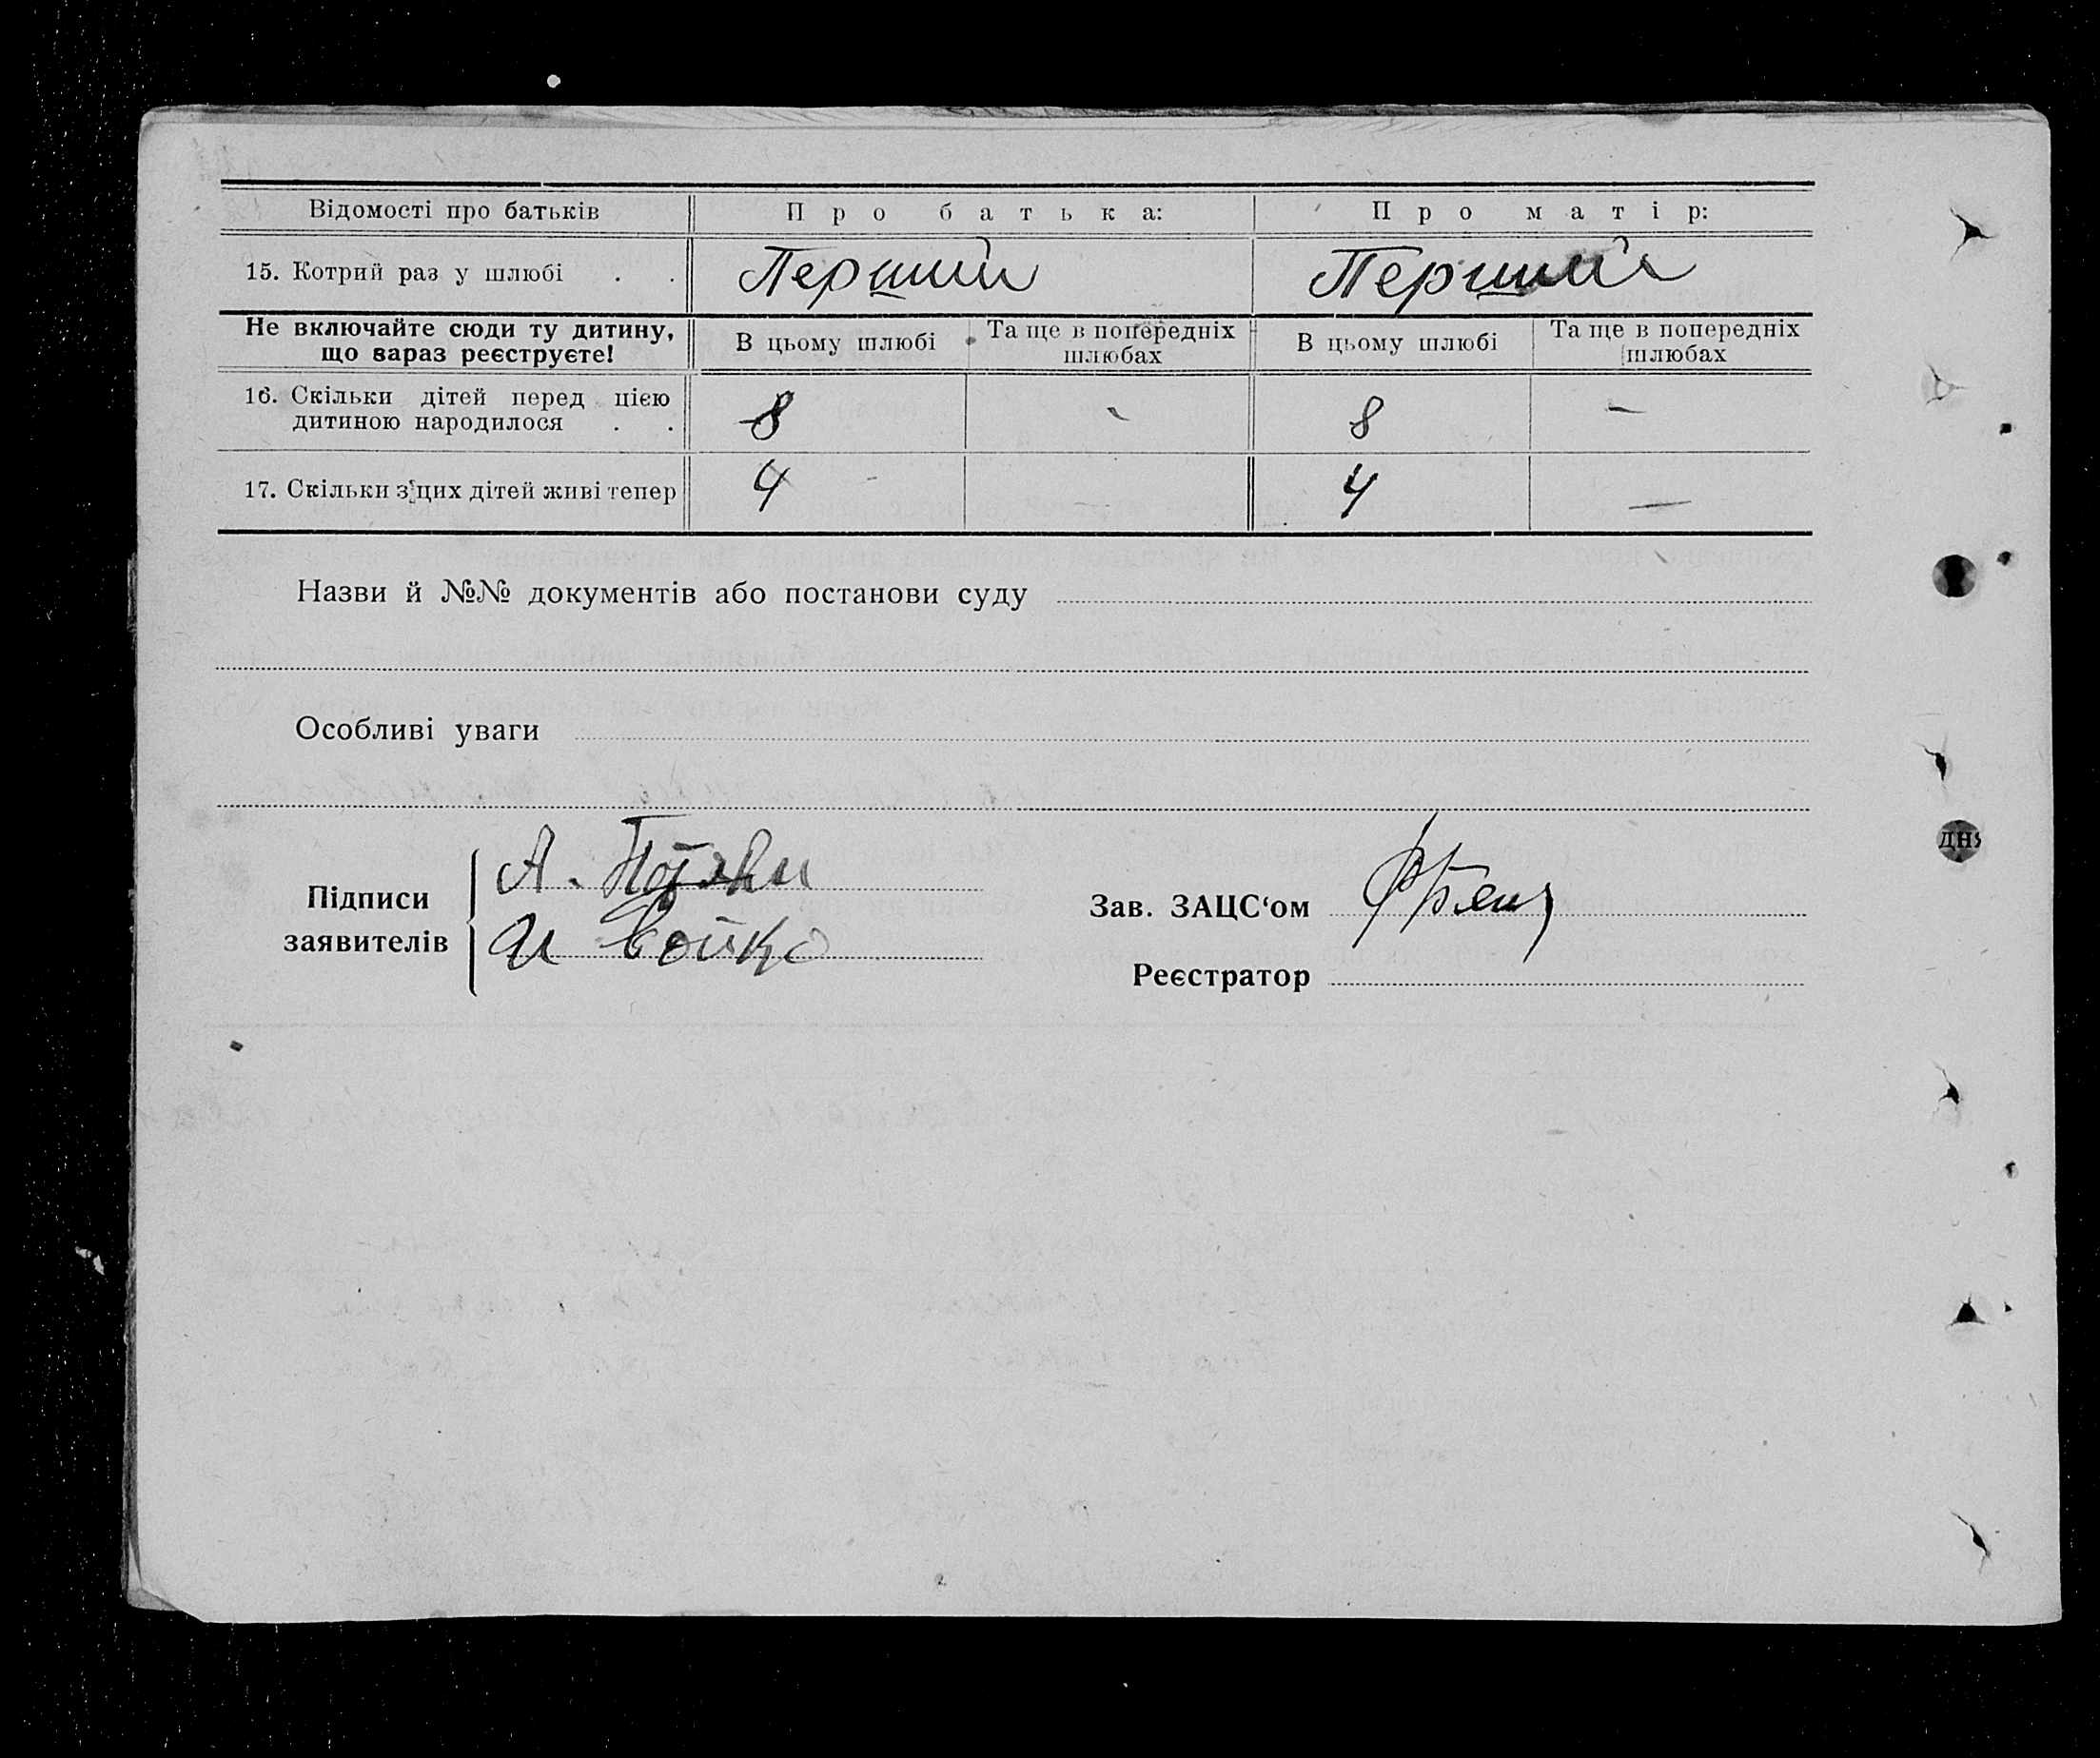 Відомості про батьків Про батька: Про матір:
15. Котрий раз у шлюбі . . Перший Перший
Не включайте сюди ту дитину, що зараз реєструєте! В цьому шлюбі Та ще в попередніх шлюбах В цьому шлюбі Та ще в попередніх шлюбах
16. Скільки дітей перед цією
дитиною народилося . . 8 - 8 —
17. Скільки з цих дітей живі тепер 4 - 4 —
Назви й №№ документів або постанови суду
Особливі уваги
Підписи заявителів
А.
И Бойко
Зав. ЗАЦС‘ом
Реєстратор